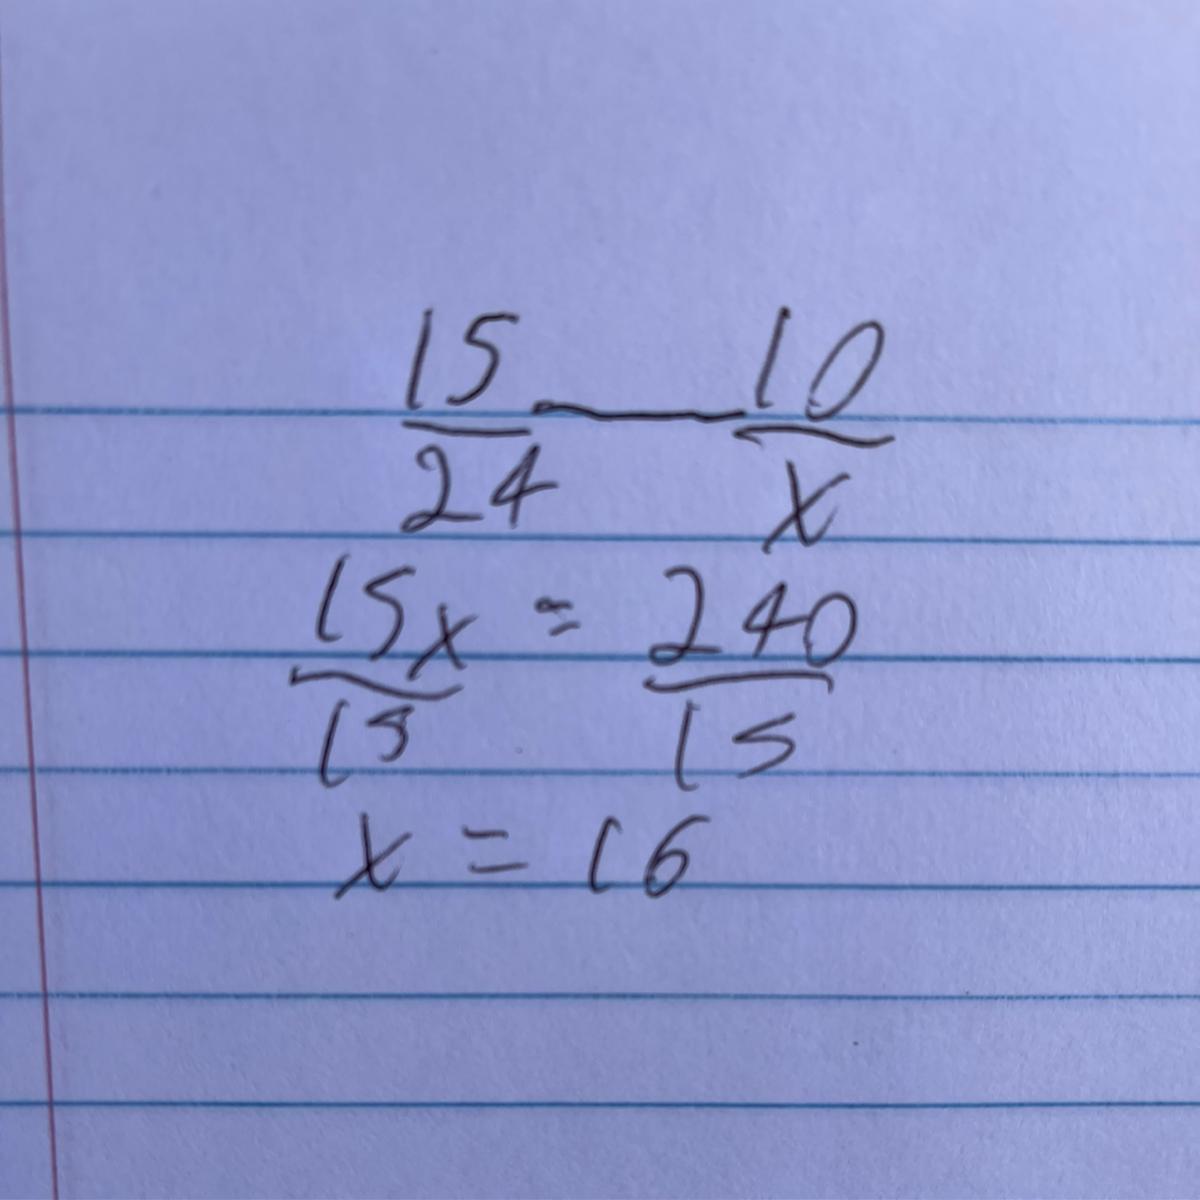 15/24 — 10/x
15x/15 = 240/15
x = 16